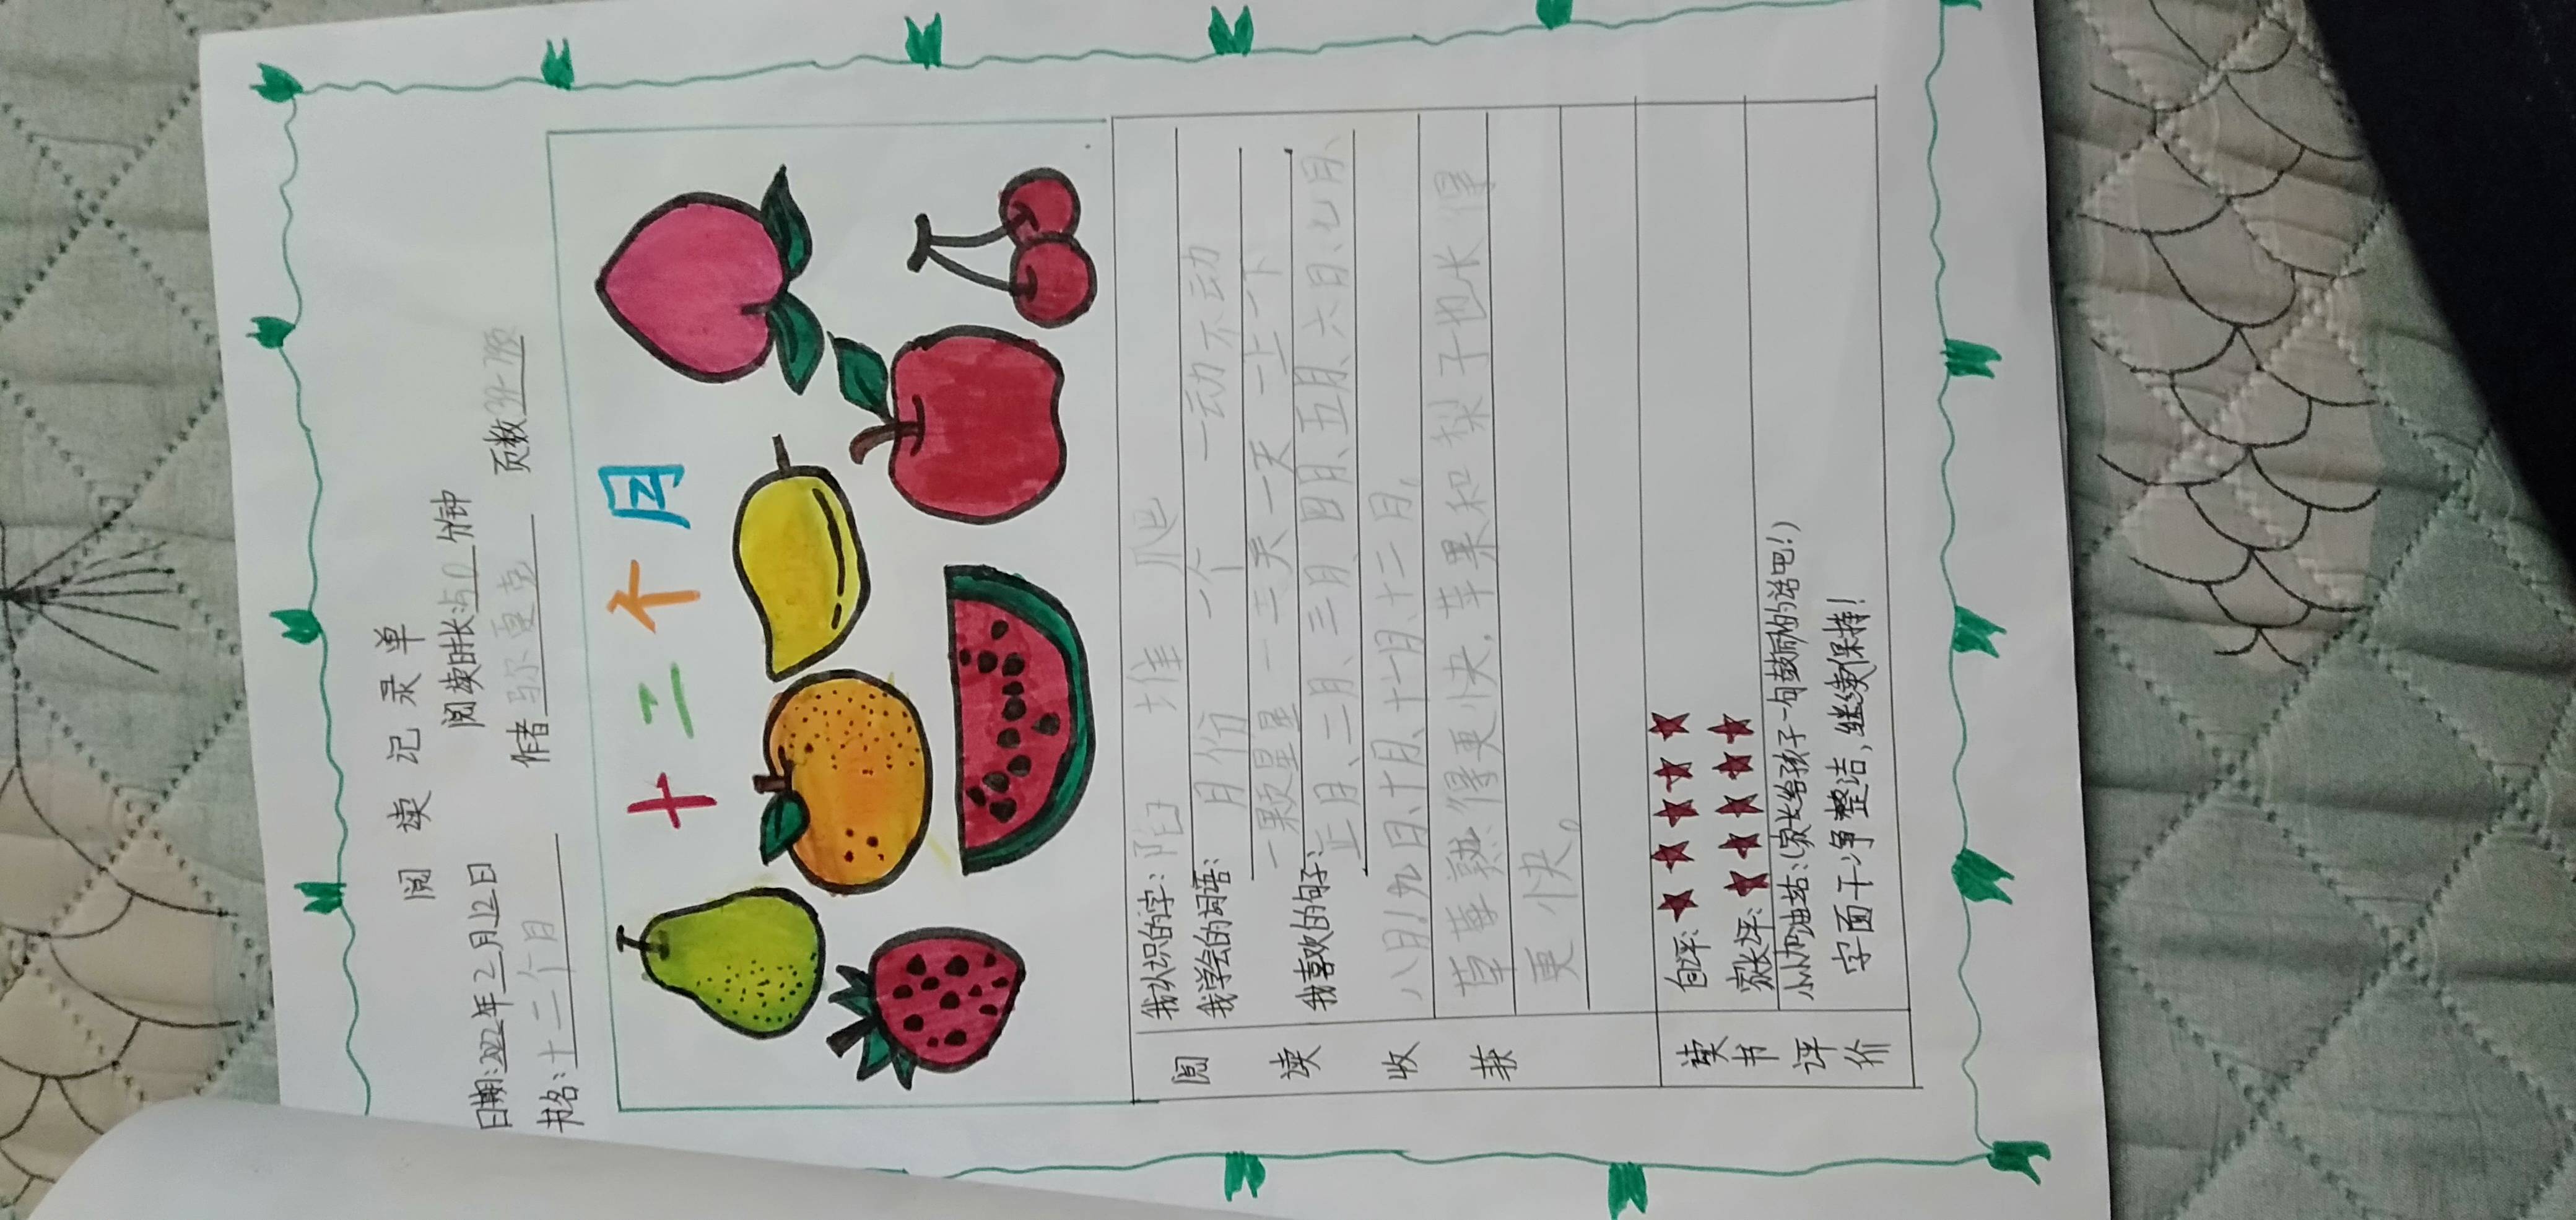 阅读记录单
阅读时长:50分钟
日期:2022年2月12日 作者 马尔夏克 页数
书名:十二个月
十二个月
阅读收获
我认识的字:陷 堆 爬
我学会的词语:
月份 一个 一动不动
一颗星星 一 天一天 一上一下
我喜欢的句子:
正月、二月、三月、四月、五月、六月、七月、
八月、九月、十月、十一月、十二月,
草莓熟得更快,苹果和梨子也长得
更快。
读书评价
自评:★★★★★
家长评:★★★★★
小小加油站:(家长给孩子一句鼓励的话吧!)
字面干净整洁,继续保持!